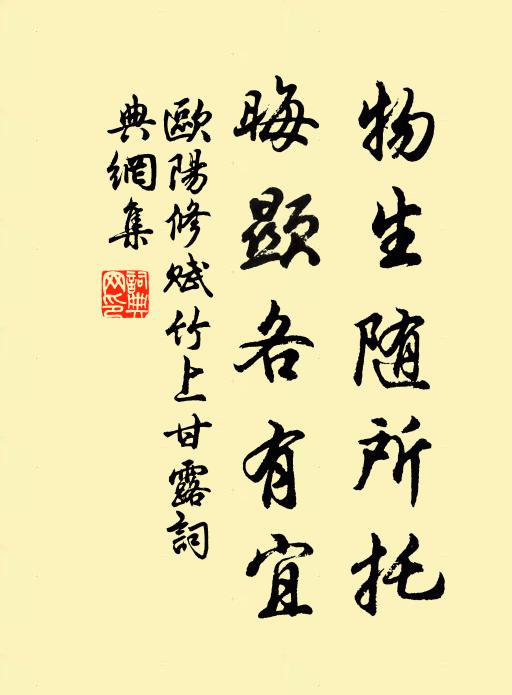 物生随所托
晦顯各有宜
歐陽修賦竹上甘露詞
典網集
詞典
网印